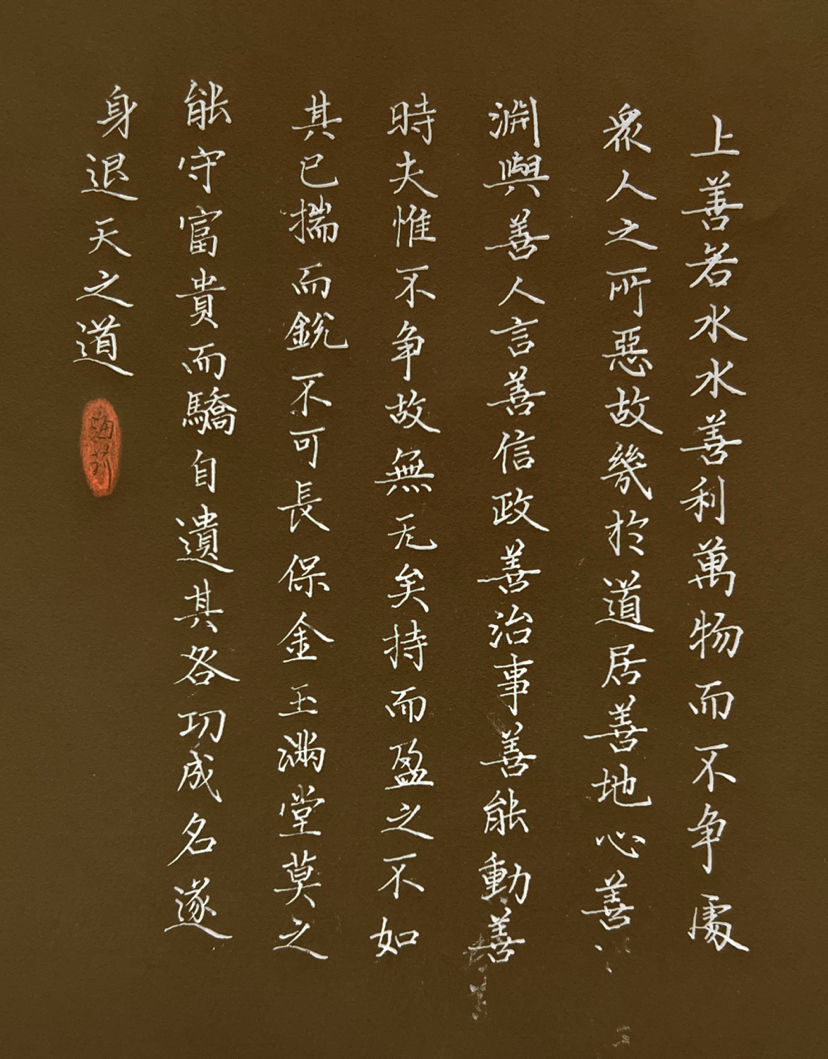 上善若水水善利萬物而不争處
衆人之所惡故幾於道居善地心善
淵與善人言善信政善治事善能動善
時夫惟不争故無尤矣持而盈之不如
其已揣而銳不可長保金玉滿堂莫之
能守富貴而驕自遺其各功成名遂
身退天之道